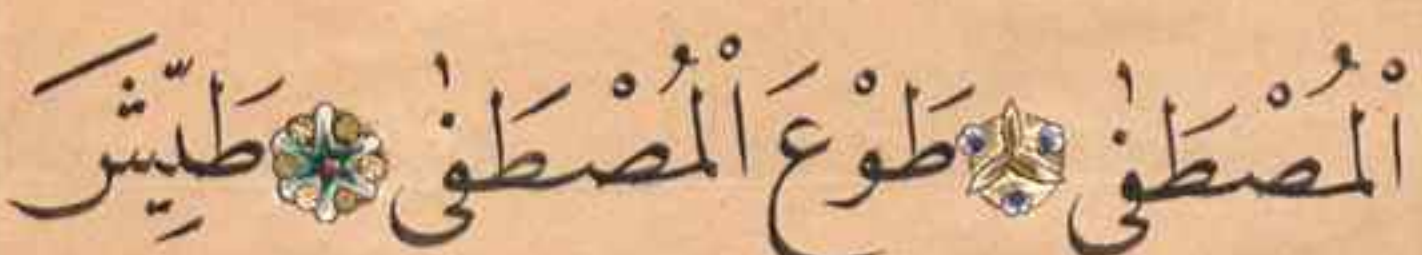 اْلْمُصْطَفٰى طَوْعَ اْلْمُصْطَفٰى